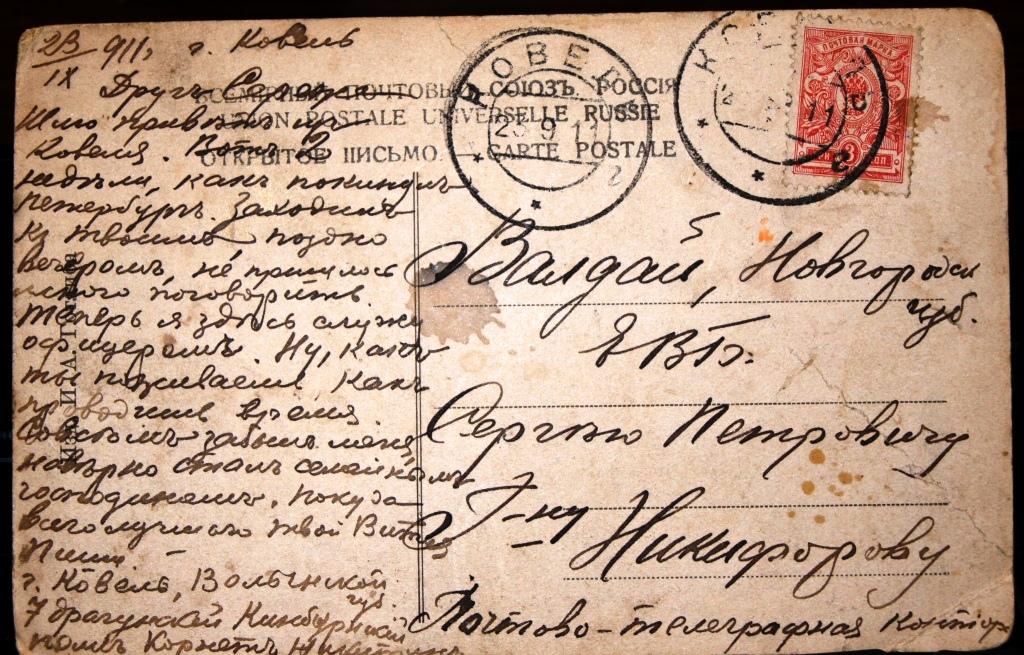 23/IX 911, г. Ковель
Другъ Сережа
ВСЕМIРНЫЙ ПОЧТОВЫЙ СОЮЗЪ. РОССIЯ
UNION POSTALE UNIVERSELLE RUSSIE
ОТКРЫТОЕ ПИСЬМО. CARTE POSTALE
Шлю привѣтъ изъ
Ковеля. Вотъ 2
недѣли, какъ покинулъ
Петербургъ. Заходилъ
къ твоимъ поздно
вечеромъ, не пришлось
много поговорить.
Теперь я здѣсь служу
офицеромъ. Ну, какъ
ты поживаешь какъ
проводишь время
Совсѣмъ забылъ меня,
навѣрно сталъ семейнымъ
господиномъ. Покуда
всего лучшаго твой
Пиши
г. Ковель, Волынской
губ.
7 драгунскiй Кинбурнскiй
полкъ Корнетъ Никитинъ
КОВЕЛ
23 9 11
г
КО
11
г
ПОЧТОВАЯ МАРКА
ТРИ 3 КОП
Валдай, Новгородск
губ.
ЕВБ.
Сергѣю Петровичу
Г-ну
Никифорову
Почтово-телеграфная контора